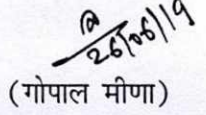 26/06/19
(गोपाल मीणा)